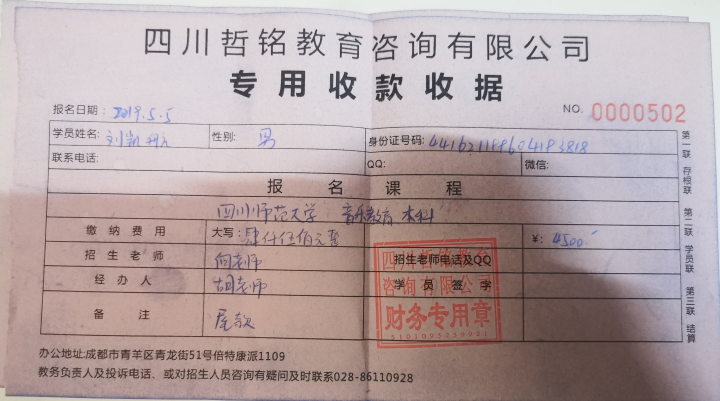 四川哲铭教育咨询有限公司
专用收款收据
报名日期: 2019.5.5 NO. 0000502
学员姓名: 刘凯 性别: 男 身份证号码:
联系电话: QQ: 微信:
报名课程
四川师范大学 音乐教育 本科
缴纳费用 大写: 肆仟伍佰元整 ¥: 4500
招生老师 向老师 招生老师电话及QQ
经办人 胡老师 学员签字
备注
第一联 存根联 第二联 学员联 第三联 结算
四川哲铭教育
咨询有限公司
财务专用章
5101095239951
办公地址:成都市青羊区青龙街51号倍特康派1109
教务负责人及投诉电话、或对招生人员咨询有疑问及时联系028-86110928